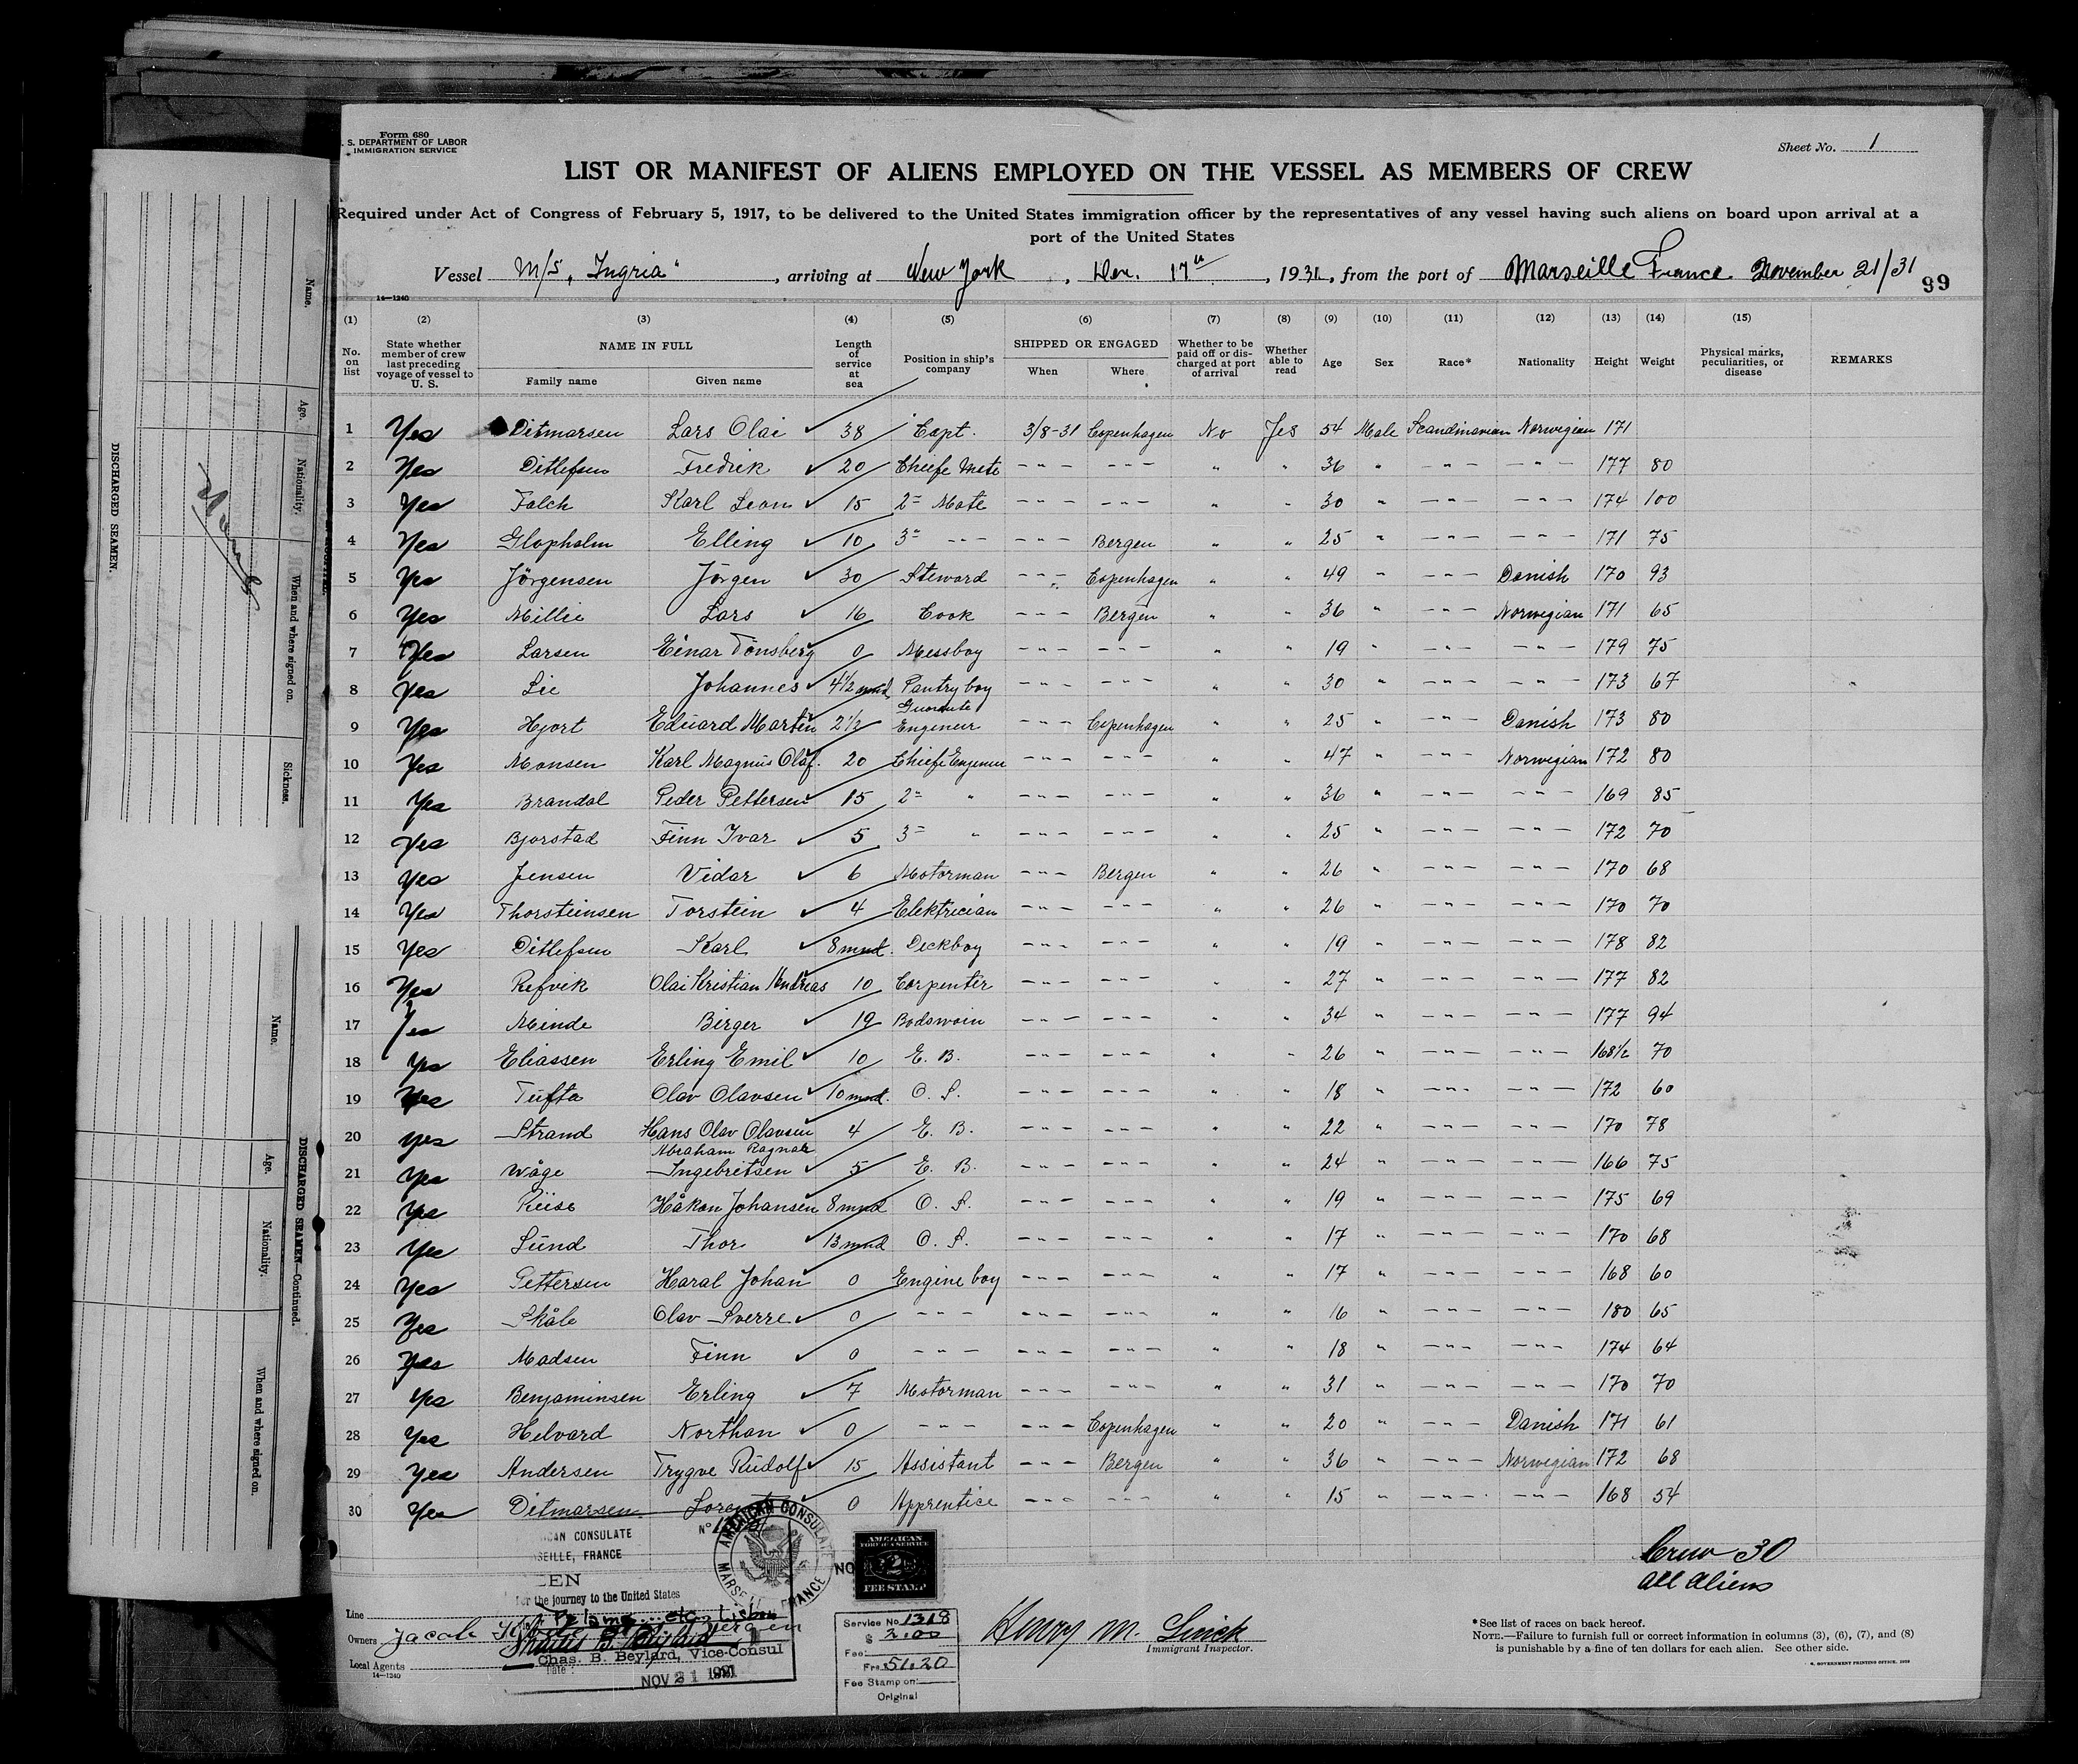 Form 680
S. DEPARTMENT OF LABOR
IMMIGRATION SERVICE
Sheet No. 1
LIST OR MANIFEST OF ALIENS EMPLOYED ON THE VESSEL AS MEMBERS OF CREW
Required under Act of Congress of February 5, 1917, to be delivered to the United States immigration officer by the representatives of any vessel having such aliens on board upon arrival at a
port of the United States
Vessel M/S „Ingria“, arriving at New York, Dec. 17th, 1931, from the port of Marseille France November 21/31
99
14—1240
(1) (2) (3) (4) (5) (6) (7) (8) (9) (10) (11) (12) (13) (14) (15)
No. on list State whether member of crew last preceding voyage of vessel to U. S. NAME IN FULL Family name Given name Length of service at sea Position in ship's company SHIPPED OR ENGAGED When Where Whether to be paid off or discharged at port of arrival Whether able to read Age Sex Race* Nationality Height Weight Physical marks, peculiarities, or disease REMARKS
1 Yes Ditmarsen Lars Olai 38 Capt. 3/8-31 Copenhagen No Yes 54 Male Scandinavian Norwegian 171
2 Yes Ditlefsen Fredrik 20 Chiefe Mate - " - - " - " " 36 " - " - - " - 177 80
3 Yes Falch Karl Leon 15 2= Mate - " - - " - " " 30 " - " - - " - 174 100
4 Yes Glopholm Elling 10 3= - " - - " - Bergen " " 25 " - " - - " - 171 75
5 Yes Jörgensen Jörgen 30 Steward - " - Copenhagen " " 49 " - " - Danish 170 93
6 Yes Millie Lars 16 Cook - " - Bergen " " 36 " - " - Norwegian 171 65
7 Yes Larsen Einar Tönsberg 0 Messboy - " - - " - " " 19 " - " - - " - 179 75
8 Yes Lie Johannes 4½ mnd Pantry boy - " - - " - " " 30 " - " - - " - 173 67
9 Yes Hjort Eduard Martin 2½ Engeneur - " - Copenhagen " " 25 " - " - Danish 173 80
10 Yes Monsen Karl Magnus Olaf. 20 Chiefe Engeneur - " - - " - " " 47 " - " - Norwegian 172 80
11 Yes Brandal Peder Pettersen 15 2= " - " - - " - " " 36 " - " - - " - 169 85
12 Yes Bjorstad Finn Ivar 5 3= " - " - - " - " " 25 " - " - - " - 172 70
13 Yes Jensen Vidar 6 Motorman - " - Bergen " " 26 " - " - - " - 170 68
14 Yes Thorsteinsen Torstein 4 Elektrician - " - - " - " " 26 " - " - - " - 170 70
15 Yes Ditlefsen Karl 8 mnd. Deckboy - " - - " - " " 19 " - " - - " - 178 82
16 Yes Refvik Olai Kristian Andreas 10 Carpenter - " - - " - " " 27 " - " - - " - 177 82
17 Yes Minde Birger 19 Bodswain - " - - " - " " 34 " - " - - " - 177 94
18 Yes Eliassen Erling Emil 10 E. B. - " - - " - " " 26 " - " - - " - 168½ 70
19 Yes Tufta Olav Olavsen 10 mnd. O. S. - " - - " - " " 18 " - " - - " - 172 60
20 Yes Strand Hans Olav Olavsen 4 E. B. - " - - " - " " 22 " - " - - " - 170 78
21 Yes Wåge Abraham Ragnar Ingebretsen 5 E. B. - " - - " - " " 24 " - " - - " - 166 75
22 Yes Riise Håkon Johansen 8 mnd O. S. - " - - " - " " 19 " - " - - " - 175 69
23 Yes Lund Thor 13 mnd O. S. - " - - " - " " 17 " - " - - " - 170 68
24 Yes Pettersen Haral Johan 0 Engine boy - " - - " - " " 17 " - " - - " - 168 60
25 Yes Skåle Olav Sverre 0 - " - - " - - " - " " 16 " - " - - " - 180 65
26 Yes Madsen Finn 0 - " - - " - - " - " " 18 " - " - - " - 174 64
27 Yes Benjaminsen Erling 7 Motorman - " - - " - " " 31 " - " - - " - 170 70
28 Yes Helvard Northan 0 - " - - " - Copenhagen " " 20 " - " - Danish 171 61
29 Yes Andersen Trygve Rudolf 15 Assistant - " - Bergen " " 36 " - " - Norwegian 172 68
30 Yes Ditmarsen 0 Apprentice - " - - " - " " 15 " - " - - " - 168 54
CAN CONSULATE
SEILLE, FRANCE
No
AMERICAN CONSULATE
MARSEILLE FRANCE
AMERICAN
FEE STAMP
Crew 30
All Aliens
for the journey to the United States
Line
Owners Jacob
Local Agents
14—1240
Chas. B. Beylard, Vice-Consul
Date
NOV 21 1931
Service No. 1318
$ 2.00
Fee
Frs 51.20
Fee Stamp on
Original
Henry M.
Immigrant Inspector.
*See list of races on back hereof.
NOTE.—Failure to furnish full or correct information in columns (3), (6), (7), and (8)
is punishable by a fine of ten dollars for each alien. See other side.
GOVERNMENT PRINTING OFFICE
DISCHARGED SEAMEN.
Name.
Age.
Nationality.
When and where signed on.
Sickness.
DISCHARGED SEAMEN—Continued.
Name.
Age.
Nationality.
When and where signed on.